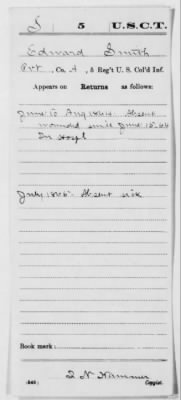 S | 5 | U.S.C.T.
Edward Smith
Pvt, Co. A, 5 Reg't U. S. Col'd Inf.
Appears on Returns as follows:
June to Aug 1864 Absent
wounded since June 15-64
In Hospl
July 1865 Absent sick
Book mark:
D N Hammer
(546) Copyist.